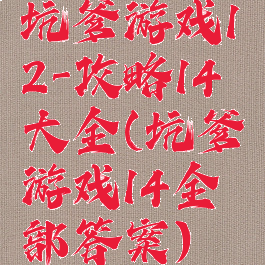 坑爹游戏1
2-攻略14
大全(坑爹
游戏14全
部答案)